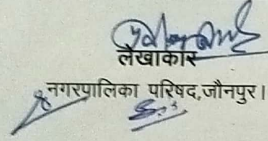 लेखाकार
नगरपालिका परिषद,जौनपुर।